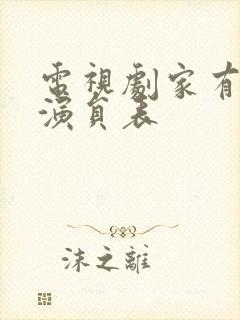 電視劇家有
演員表
沫之離